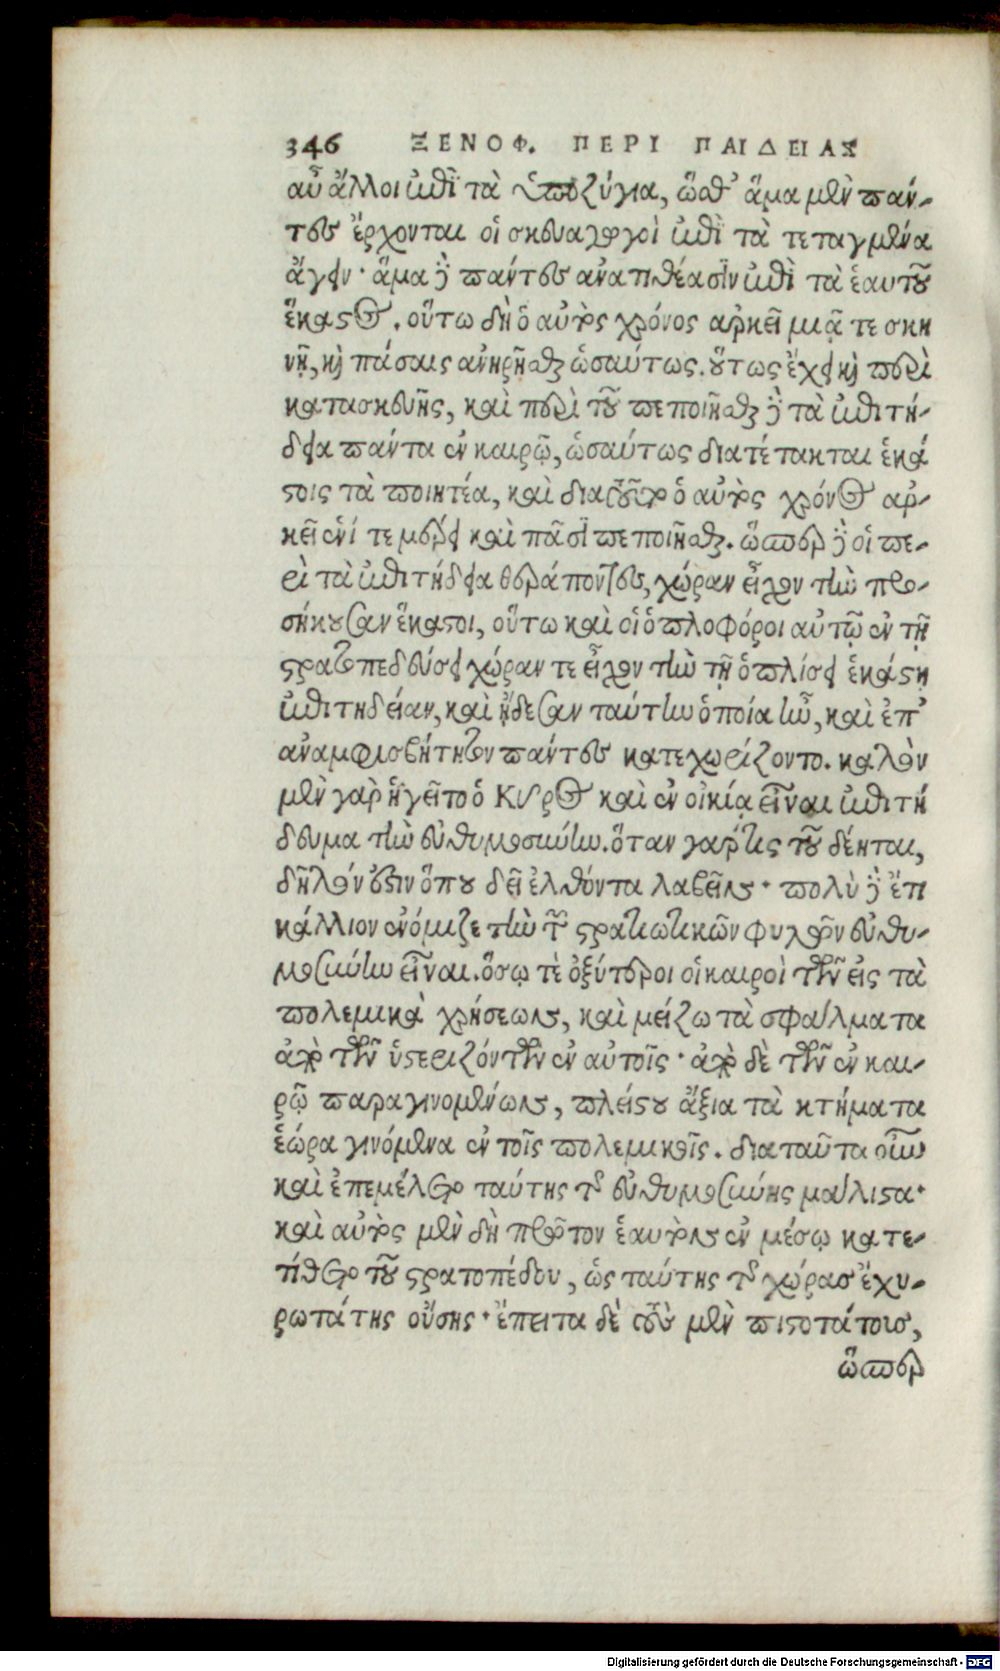 346 ΞΕΝΟΦ. ΠΕΡΙ ΠΑΙΔΕΙΑΣ
αὖ ἄλλοι ἐπὶ τὰ ὑποζύγια, ὥσθ' ἅμα μὲν πάν-
τες ἔρχονται οἱ σκευαγωγοὶ ἐπὶ τὰ τεταγμένα
ἄγειν· ἅμα δὲ πάντες ἀνατιθέασιν ἐπὶ τὰ ἑαυτοῦ
ἕκαστος. οὕτω δὴ ὁ αὐτὸς χρόνος ἀρκεῖ μιᾷ τε σκη
νῇ, καὶ πάσαις ἀνῃρῆσθαι ὡσαύτως. οὕτως ἔχει καὶ περὶ
κατασκευῆς, καὶ περὶ τοῦ πεποιῆσθαι δὲ τὰ ἐπιτή-
δεια πάντα ἐν καιρῷ, ὡσαύτως διατέτακται ἑκά
στοις τὰ ποιητέα, καὶ διατοῦτο ὁ αὐτὸς χρόνος ἀρ-
κεῖ ἑνί τε μέρει καὶ πᾶσι πεποιῆσθαι. ὥσπερ δὲ οἱ πε-
ρὶ τὰ ἐπιτήδεια θεράποντες, χώραν εἶχον τὴν προ-
σήκουσαν ἕκαστοι, οὕτω καὶ οἱ ὁπλοφόροι αὐτῷ ἐν τῇ
στρατοπεδεύσει χώραν τε εἶχον τὴν τῇ ὁπλίσει ἑκάστῃ
ἐπιτηδείαν, καὶ ᾔδεσαν ταύτην ὁποία ἦν, καὶ ἐπ'
ἀναμφισβήτητον πάντες κατεχωρίζοντο. καλὸν
μὲν γὰρ ἡγεῖτο ὁ Κῦρος καὶ ἐν οἰκίᾳ εἶναι ἐπιτή
δευμα τὴν εὐθυμοσύνην. ὅταν γάρ τις τοῦ δέηται,
δῆλόν ἐστιν ὅπου δεῖ ἐλθόντα λαβεῖν· πολὺ δὲ ἔτι
κάλλιον ἐνόμιζε τὴν τῶν στρατιωτικῶν φυλῶν εὐθυ-
μοσύνην εἶναι. ὅσῳ τὲ ὀξύτεροι οἱ καιροὶ τῶν εἰς τὰ
πολεμικὰ χρήσεων, καὶ μείζω τὰ σφάλματα
ἀπὸ τῶν ὑστεριζόντων ἐν αὐτοῖς· ἀπὸ δὲ τῶν ἐν και-
ρῷ παραγινομένων, πλείστου ἄξια τὰ κτήματα
ἑώρα γινόμενα ἐν τοῖς πολεμικοῖς. διαταῦτα οὖν
καὶ ἐπεμέλετο ταύτης τῆς εὐθυμοσύνης μάλιστα·
καὶ αὐτὸς μὲν δὴ πρῶτον ἑαυτὸν ἐν μέσῳ κατε-
τίθετο τοῦ στρατοπέδου, ὡς ταύτης τῆς χώρας ἐχυ-
ρωτάτης οὔσης· ἔπειτα δὲ τοὺς μὲν πιστοτάτους,
ὥσπερ
Digitalisierung gefördert durch die Deutsche Forschungsgemeinschaft - DFG